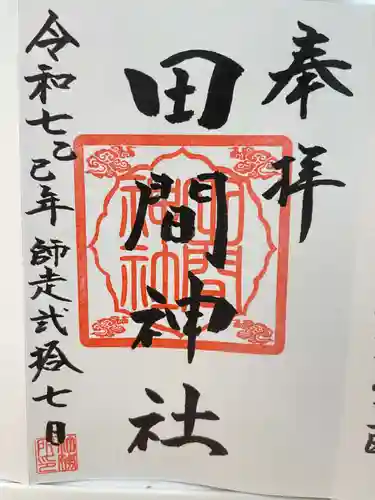 奉拝
田間神社
令和七乙巳年師走弐拾七日
田間神社